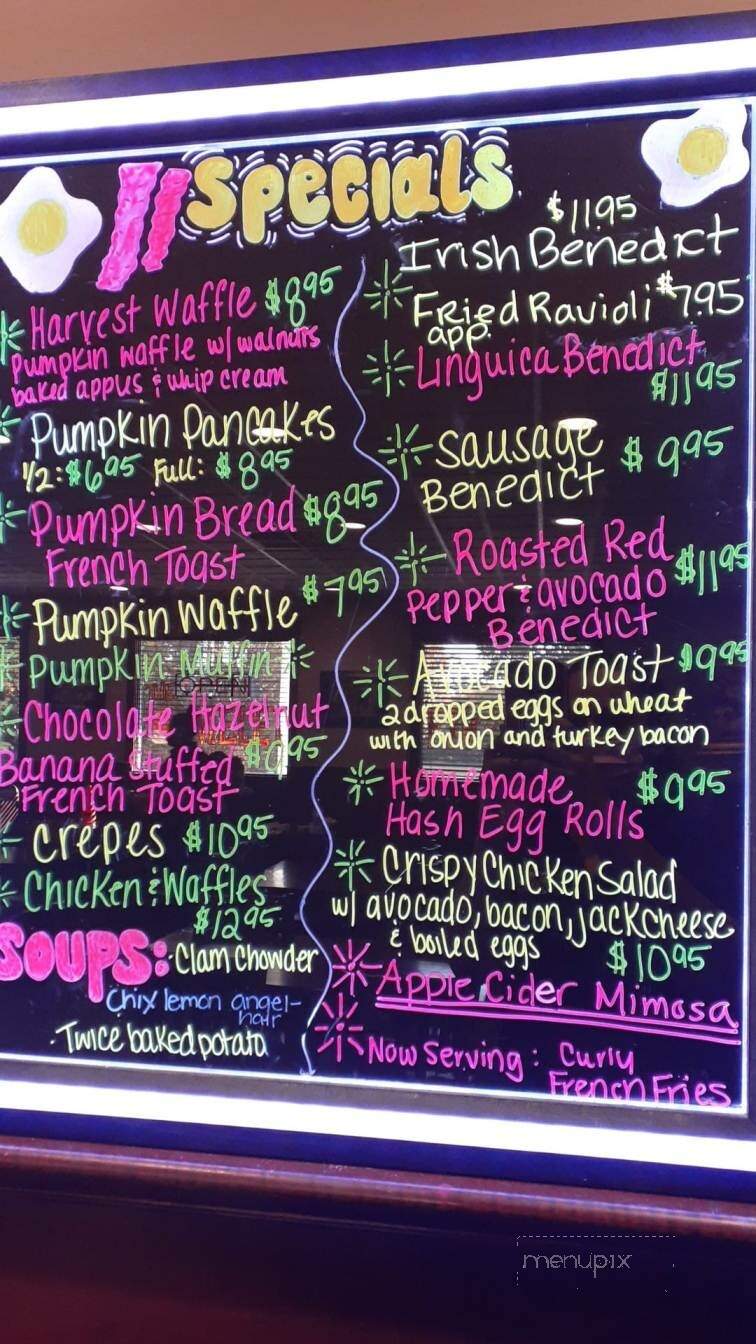 Specials
Harvest Waffle $8.95
Pumpkin waffle w/ walnuts
baked appus & whip cream
Pumpkin Pancakes
1/2: $6.95 Full: $8.95
Pumpkin Bread $8.95
French Toast
Pumpkin Waffle $7.95
Pumpkin Muffin
Chocolate Hazelnut
Banana Stuffed $9.95
French Toast
Crepes $10.95
Chicken & Waffles
$12.95
SOUPS: Clam Chowder
Chix lemon angel-
hair
Twice baked potato
$11.95
Irish Benedict
Fried Ravioli $7.95
app.
Linguica Benedict
$11.95
Sausage $9.95
Benedict
Roasted Red
Pepper & avocado $11.95
Benedict
Avocado Toast $9.95
2 dropped eggs on wheat
with onion and turkey bacon
Homemade $9.95
Hash Egg Rolls
Crispy Chicken Salad
w/ avocado, bacon, jack cheese
& boiled eggs $10.95
Apple Cider Mimosa
Now Serving: Curly
French Fries
OPEN
menupix